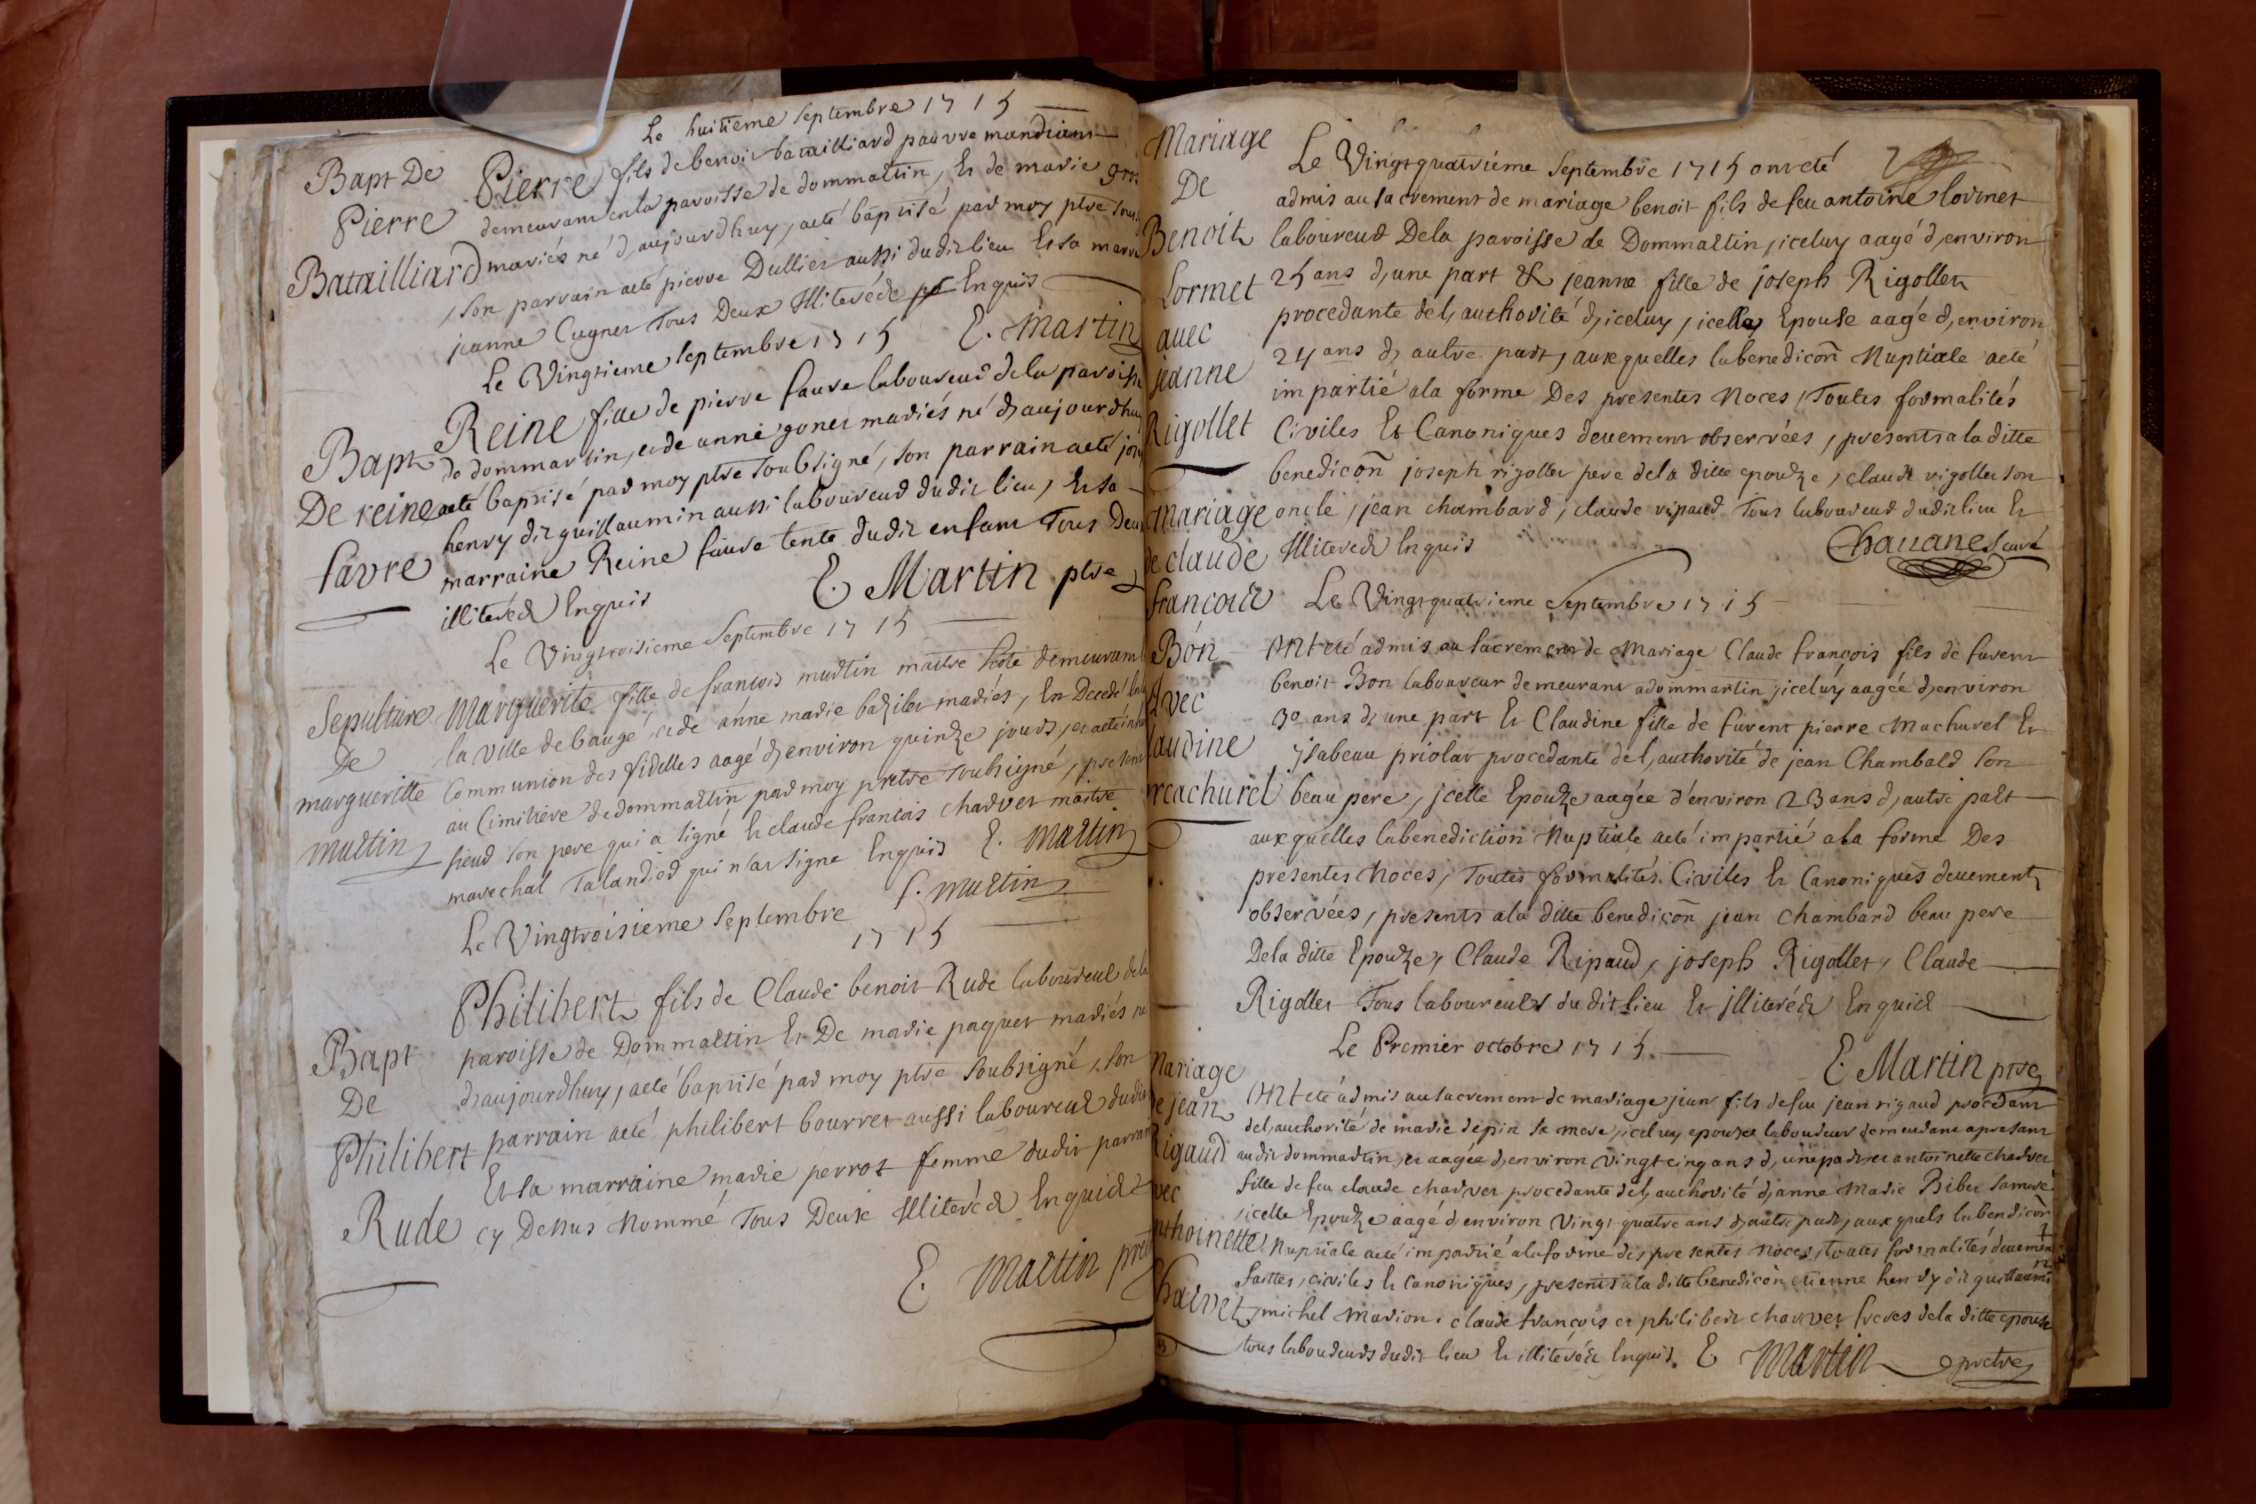 Le huitieme septembre 1715
Bapt De
Pierre
Batailliard
Pierre fils de benoit batailliard pauvre mandiant
demeurant en la paroisse de dommartin, Et de marie
mariés né d'aujourdhuy, a eté baptisé par moy ptre
, son parrain a eté pierre Dullier aussi dudit lieu Et sa
jeanne Cugnet Tous Deux Illiterés Enquis
E. Martin
Le Vingtieme septembre 1715
Bapt
De reine
favre
Reine fille de pierre favre laboureur de la paroisse
de dommartin, et de anne gonet mariés né d'aujourdhuy
a eté baptisé par moy ptre soubsigné, son parrain a eté
henry dit guillaumin aussi laboureur dudit lieu, Et sa
marraine Reine favre tente dudit enfant Tous Deux
illiterés Enquis
E. Martin ptre
Le Vingtroisieme Septembre 1715
Sepulture
De
margueritte
martin
Marguerite fille de francois martin maitre demeurant
la ville de baugé, et de anne marie baziler mariés, Est Decedé
Communion des fidelles aagé d'environ quinze jours, et a eté
au Cimitiere de dommartin par moy pretre soubsigné,
sieur son pere qui a signé Et claude francois charvet maitre
marechal Talandier qui n'at signé Enquis E. Martin
f. martin
Le Vingtroisieme septembre
1715
Bapt
De
Philibert
Rude
Philibert fils de Claude benoit Rude laboureur de la
paroisse de Dommartin Et De marie paquet mariés né
d'aujourdhuy, a eté baptisé par moy ptre soubsigné, son
parrain a eté philibert bourret aussi laboureur dudit
Et sa marraine marie perrot femme dudit parrain
cy Dessus Nommé Tous Deux Illiterés Enquis
E. Martin
Mariage
De
Benoit
Lormet
avec
jeanne
Rigollet
Le Vingtquatrieme Septembre 1715 ont eté
admis au sacrement de mariage benoit fils de feu antoine lormet
laboureur De la paroisse de Dommartin, iceluy aagé d'environ
25 ans d'une part & jeanne fille de joseph Rigollet
procedante de l'authorité d'iceluy, icelle Epouse aagé d'environ
24 ans d'autre part, auxquelles la benedicõn Nuptiale a eté
impartié a la forme Des presentes Noces, Toutes formalités
Civiles Et Canoniques deuement observées, presents a la ditte
benedicõn joseph rigollet pere de la ditte epouze, claude rigollet son
oncle, jean chambard, claude ripaud Tous laboureurs dudit lieu Et
Illiterés Enquis
Chavanes curé
mariage
de claude
francois
Bon
Avec
claudine
machurel
Le Vingtquatrieme Septembre 1715
ont eté admis au sacrement de Mariage Claude francois fils de furent
benoit Bon laboureur demeurant a dommartin, iceluy aagée d'environ
30 ans d'une part Et Claudine fille de furent pierre Machurel Et
ysabeau priolat procedante de l'authorité de jean Chambard son
beau pere, jcelle Epouze aagée d'environ 23 ans d'autre part
auxquelles la benediction Nuptiale a eté impartié a la forme Des
presentes Noces, Toutes formalités Civiles Et Canoniques deuement
observées, presents a la ditte benedicõn jean chambard beau pere
De la ditte Epouze, Claude Ripaud, joseph Rigollet, Claude
Rigollet Tous laboureurs du dit lieu Et jlliterés Enquis
E. Martin ptre
Le Premier octobre 1715.
Mariage
de jean
Rigaud
avec
anthoinette
Charvet
ont eté admis au sacrement de mariage jean fils de feu jean rigaud procedant
de l'authorité de marie depin sa mere, iceluy epouze laboureur demeurant apresant
audit dommartin, et aagée d'environ vingt cinq ans d'une part et antoinette charvet
fille de feu claude charvet procedante de l'authorité d'anne Marie Biber sa mere
, icelle Epouze aagé d'environ Vingt quatre ans d'autre part, auxquels la bendicõn
Nuptiale a eté impartié a la forme des presentes Noces, toutes formalités deuement
faittes, civiles Et Canoniques, presents a la ditte benedicõn etienne henry dit guillaumin
, michel marion, claude francois et philibert charvet freres de la ditte epouse
tous laboureurs dudit lieu Et illiterés Enquis. E Martin pretre